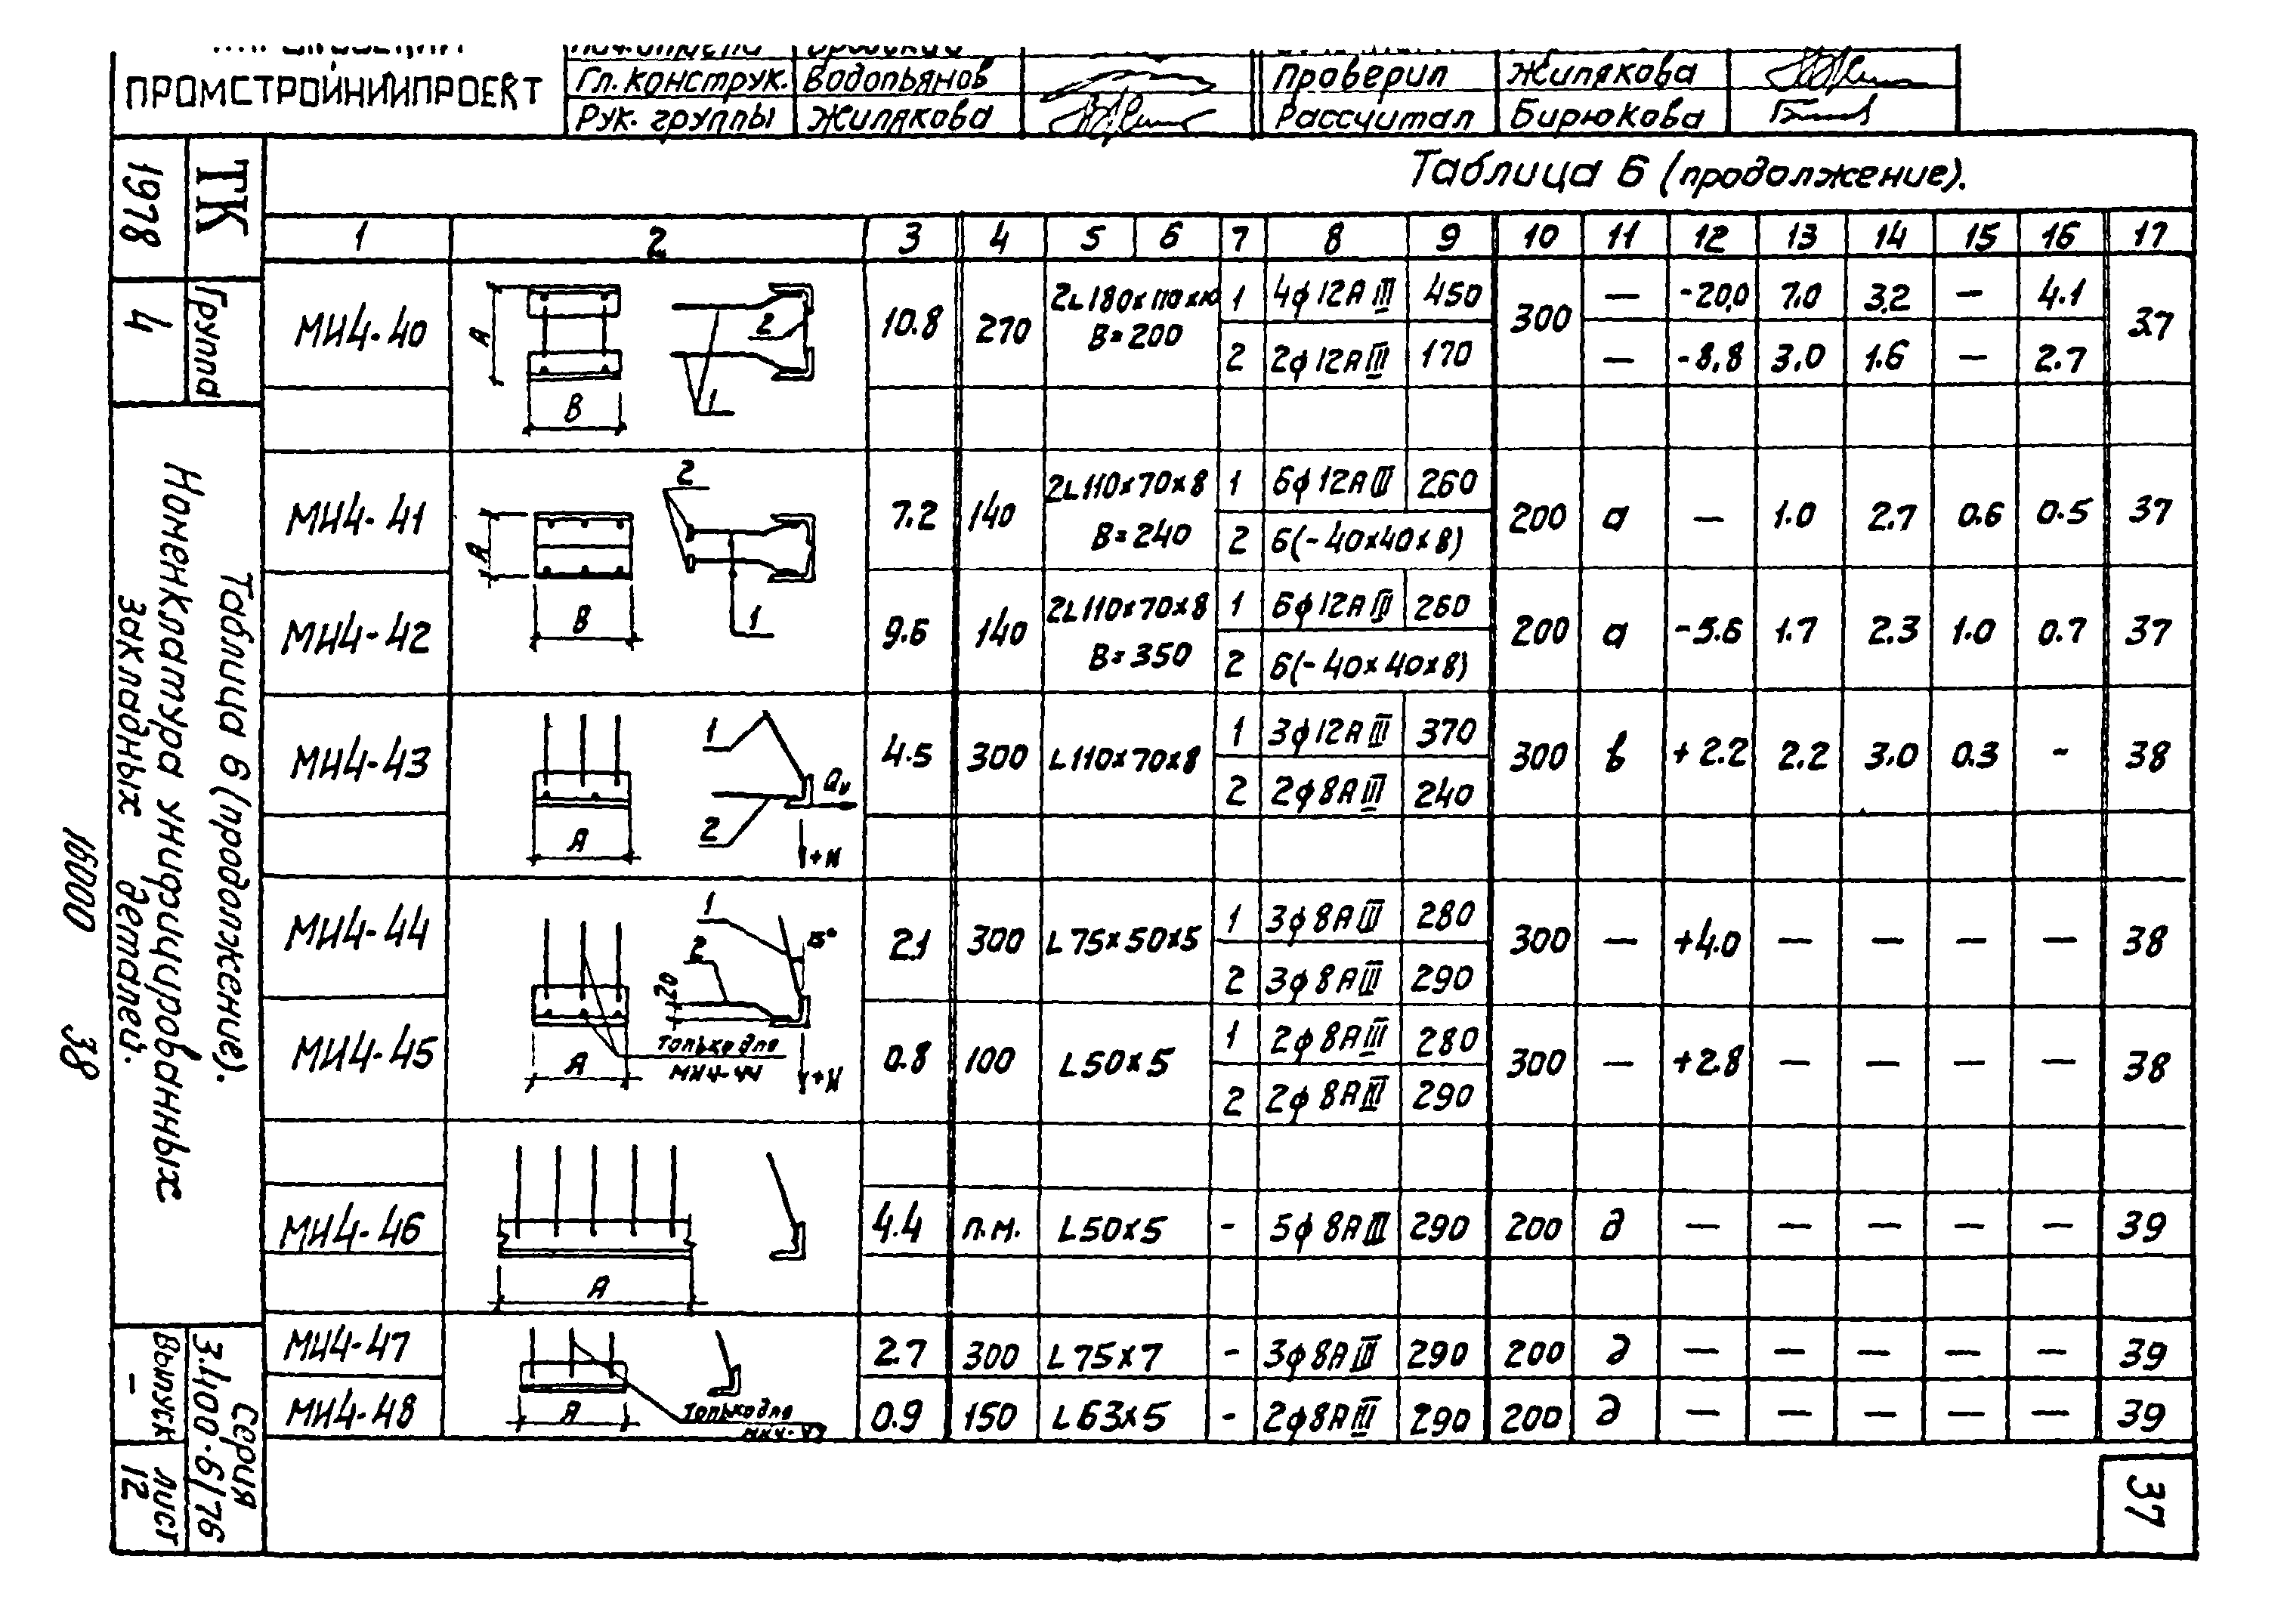 ПРОМСТРОЙНИИПРОЕКТ
Гл. конструк. Водопьянов
Рук. группы Жилякова
Проверил Жилякова
Рассчитал Бирюкова
Таблица 6 (продолжение).
1 2 3 4 5 6 7 8 9 10 11 12 13 14 15 16 17
МН4-40 10.8 270 2L180х110х10 В=200 300 37
1 4ф12АIII 450 — -20,0 7.0 3.2 — 4.1
2 2ф12АIII 170 — -8,8 3.0 1.6 — 2.7
А В 1 2
МН4-41 7.2 140 2L110х70х8 В=240 200 а — 1.0 2.7 0.6 0.5 37
1 6ф12АIII 260
2 6(-40х40х8)
А В 1 2
МН4-42 9.6 140 2L110х70х8 В=350 200 а -5.6 1.7 2.3 1.0 0.7 37
1 6ф12АIII 260
2 6(-40х40х8)
МН4-43 4.5 300 L110х70х8 300 в +2.2 2.2 3.0 0.3 - 38
1 3ф12АIII 370
2 2ф8АIII 240
А 1 2 +N
МН4-44 2.1 300 L75х50х5 300 — +4.0 — — — — 38
1 3ф8АIII 280
2 3ф8АIII 290
1 2 15° 20 А +N
только для
МН4-44
МН4-45 0.8 100 L50х5 300 — +2.8 — — — — 38
1 2ф8АIII 280
2 2ф8АIII 290
МН4-46 4.4 п.м. L50х5 - 5ф8АIII 290 200 д — — — — — 39
А
МН4-47 2.7 300 L75х7 - 3ф8АIII 290 200 д — — — — — 39
МН4-48 0.9 150 L63х5 - 2ф8АIII 290 200 д — — — — — 39
А
только для
МН4-47
ТК
1978
Группа
4
Таблица 6 (продолжение).
Номенклатура унифицированных
закладных деталей.
Серия
3.400-6/76
Выпуск
-
Лист
12
16000 38
37